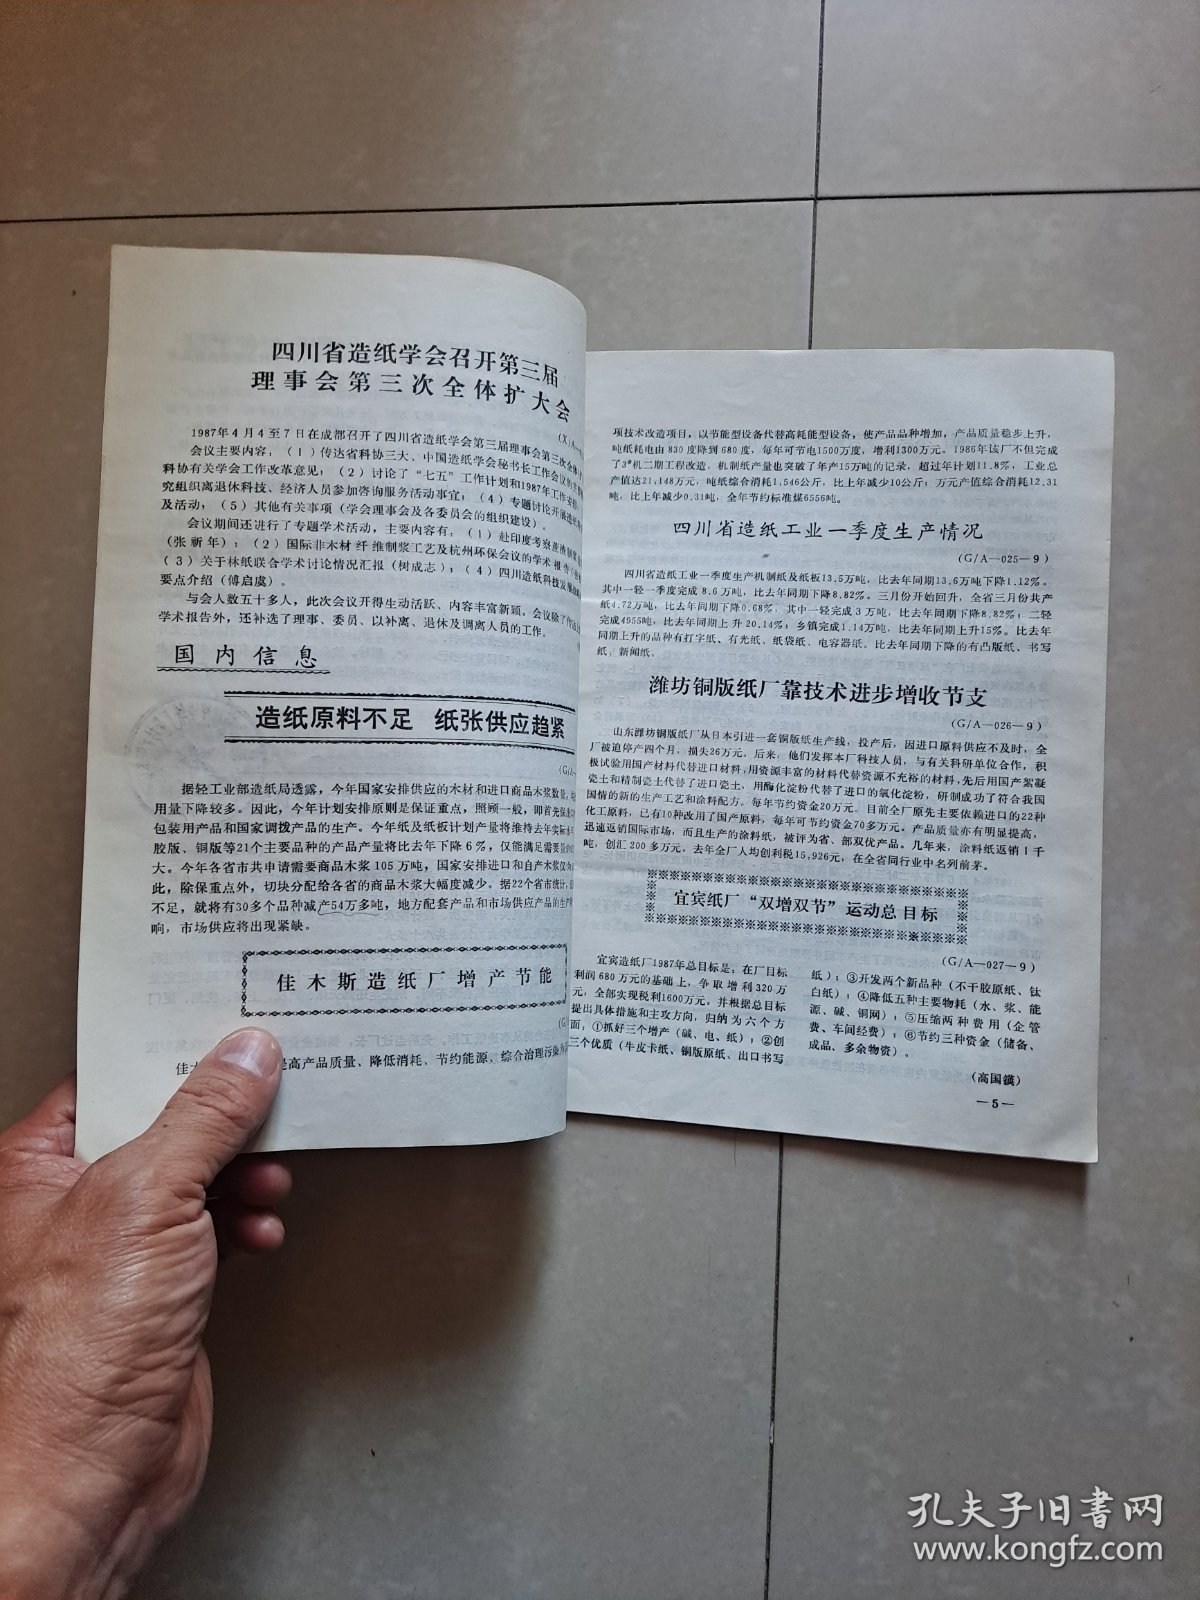 四川省造纸学会召开第三届
理事会第三次全体扩大会
1987年4月4至7日在成都召开了四川省造纸学会第三届理事会第三次全体
会议主要内容：（1）传达省科协三大、中国造纸学会秘书长工作会议
科协有关学会工作改革意见；（2）讨论了“七五”工作计划和1987年工作
究组织离退休科技、经济人员参加咨询服务活动事宜；（4）专题讨论开展造纸
及活动；（5）其他有关事项（学会理事会及各委员会的组织建设）。
会议期间还进行了专题学术活动，主要内容有：（1）赴印度考察蔗渣制浆
（张新年）；（2）国际非木材纤维制浆工艺及杭州环保会议的学术报告
（3）关于林纸联合学术讨论情况汇报（树成志）；（4）四川造纸科技发展
要点介绍（傅启虞）。
与会人数五十多人，此次会议开得生动活跃、内容丰富新颖。会议除了
学术报告外，还补选了理事、委员、以补离、退休及调离人员的工作。
国内信息
造纸原料不足 纸张供应趋紧
据轻工业部造纸局透露，今年国家安排供应的木材和进口商品木浆数量，
用量下降较多。因此，今年计划安排原则是保证重点，照顾一般，即首先保
包装用产品和国家调拨产品的生产。今年纸及纸板计划产量将维持去年实际水
胶版、铜版等21个主要品种的产品产量将比去年下降6％，仅能满足需要量的
大。今年各省市共申请需要商品木浆105万吨，国家安排进口和自产木浆仅
此，除保重点外，切块分配给各省的商品木浆大幅度减少。据22个省市统计，
不足，就将有30多个品种减产54万多吨，地方配套产品和市场供应产品的生产
响，市场供应将出现紧缺。
佳木斯造纸厂增产节能
佳
高产品质量、降低消耗、节约能源、综合治理污染
项技术改造项目，以节能型设备代替高耗能型设备，使产品品种增加，产品质量稳步上升，
吨纸耗电由830度降到680度，每年可节电1500万度，增利1300万元。1986年该厂不但完成
了3#机二期工程改造，机制纸产量也突破了年产15万吨的记录，超过年计划11.8％，工业总
产值达21,148万元，吨纸综合消耗1,546公斤，比上年减少10公斤；万元产值综合消耗12.31
吨，比上年减少0.31吨，全年节约标准煤6556吨。
四川省造纸工业一季度生产情况
（G/A—025—9）
四川省造纸工业一季度生产机制纸及纸板13.5万吨，比去年同期13.6万吨下降1.12％。
其中一轻一季度完成8.6万吨，比去年同期下降8.82％。三月份开始回升，全省三月份共产
纸4.72万吨，比去年同期下降0.68％，其中一轻完成3万吨，比去年同期下降8.82％；二轻
完成4955吨，比去年同期上升20.14％；乡镇完成1.14万吨，比去年同期上升15％。比去年
同期上升的品种有打字纸、有光纸、纸袋纸、电容器纸。比去年同期下降的有凸版纸、书写
纸、新闻纸。
潍坊铜版纸厂靠技术进步增收节支
（G/A—026—9）
山东潍坊铜版纸厂从日本引进一套铜版纸生产线，投产后，因进口原料供应不及时，全
厂被迫停产四个月，损失26万元。后来，他们发挥本厂科技人员，与有关科研单位合作，积
极试验用国产材料代替进口材料，用资源丰富的材料代替资源不充裕的材料，先后用国产絮凝
瓷土和精制瓷土代替了进口瓷土，用酶化淀粉代替了进口的氧化淀粉，研制成功了符合我国
国情的新的生产工艺和涂料配方。每年节约资金20万元。目前全厂原先主要依赖进口的22种
化工原料，已有10种改用了国产原料，每年可节约资金70多万元。产品质量亦有明显提高，
迅速返销国际市场，而且生产的涂料纸，被评为省、部双优产品。几年来，涂料纸返销1千
吨，创汇200多万元。去年全厂人均创利税15,926元，在全省同行业中名列前茅。
宜宾纸厂“双增双节”运动总目标
（G/A—027—9）
宜宾造纸厂1987年总目标是：在厂目标
利润680万元的基础上，争取增利320万
元，全部实现税利1600万元。并根据总目标
提出具体措施和主攻方向，归纳为六个方
面：①抓好三个增产（碱、电、纸）；②创
三个优质（牛皮卡纸、铜版原纸、出口书写
纸）；③开发两个新品种（不干胶原纸、钛
白纸）；④降低五种主要物耗（水、浆、能
源、碱、铜网）；⑤压缩两种费用（企管
费、车间经费）；⑥节约三种资金（储备、
成品、多余物资）。
（高国镆）
—5—
孔夫子旧书网
www.kongfz.com